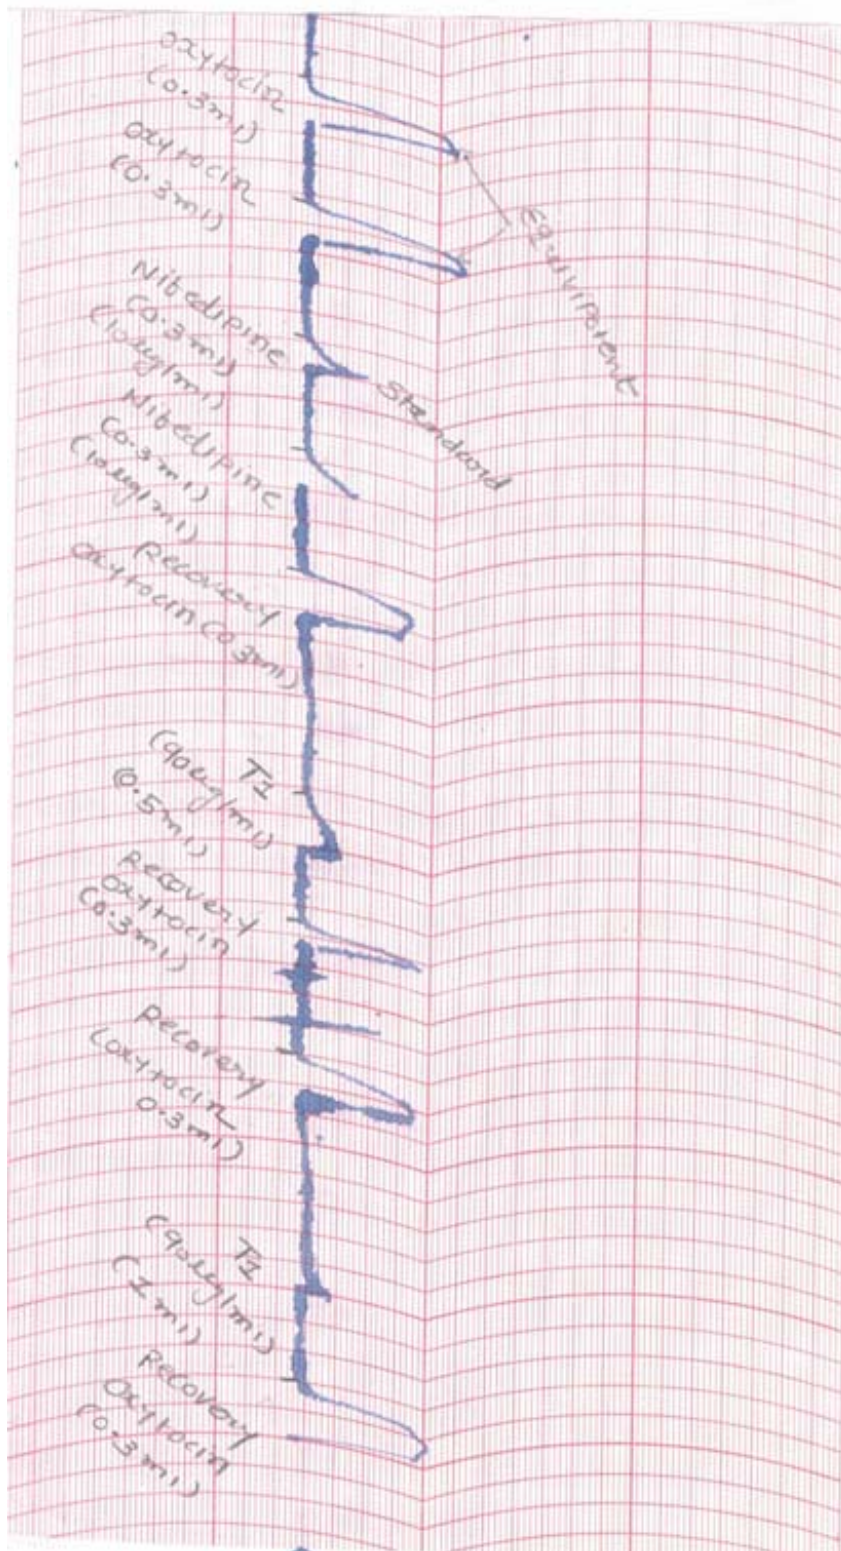 oxytocin
(0.3ml)
oxytocin
(0.3ml)
Equivipotent
Nifedipine
(0.3ml)
(10ug/ml)
Standard
Nifedipine
(0.3ml)
(10ug/ml)
Recovery
oxytocin (0.3ml)
T1
(90ug/ml)
(0.5ml)
Recovery
oxytocin
(0.3ml)
Recovery
(oxytocin
0.3ml)
T1
(90ug/ml)
(1ml)
Recovery
oxytocin
(0.3ml)